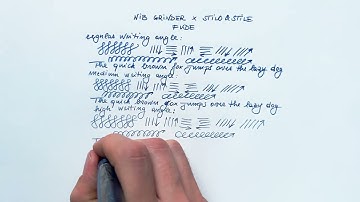 NIB GRINDER x STILO & STILE
FUDE
regular writing angle:
The quick brown fox jumps over the lazy dog
medium writing angle:
The quick brown fox jumps over the lazy dog
high writing angle: